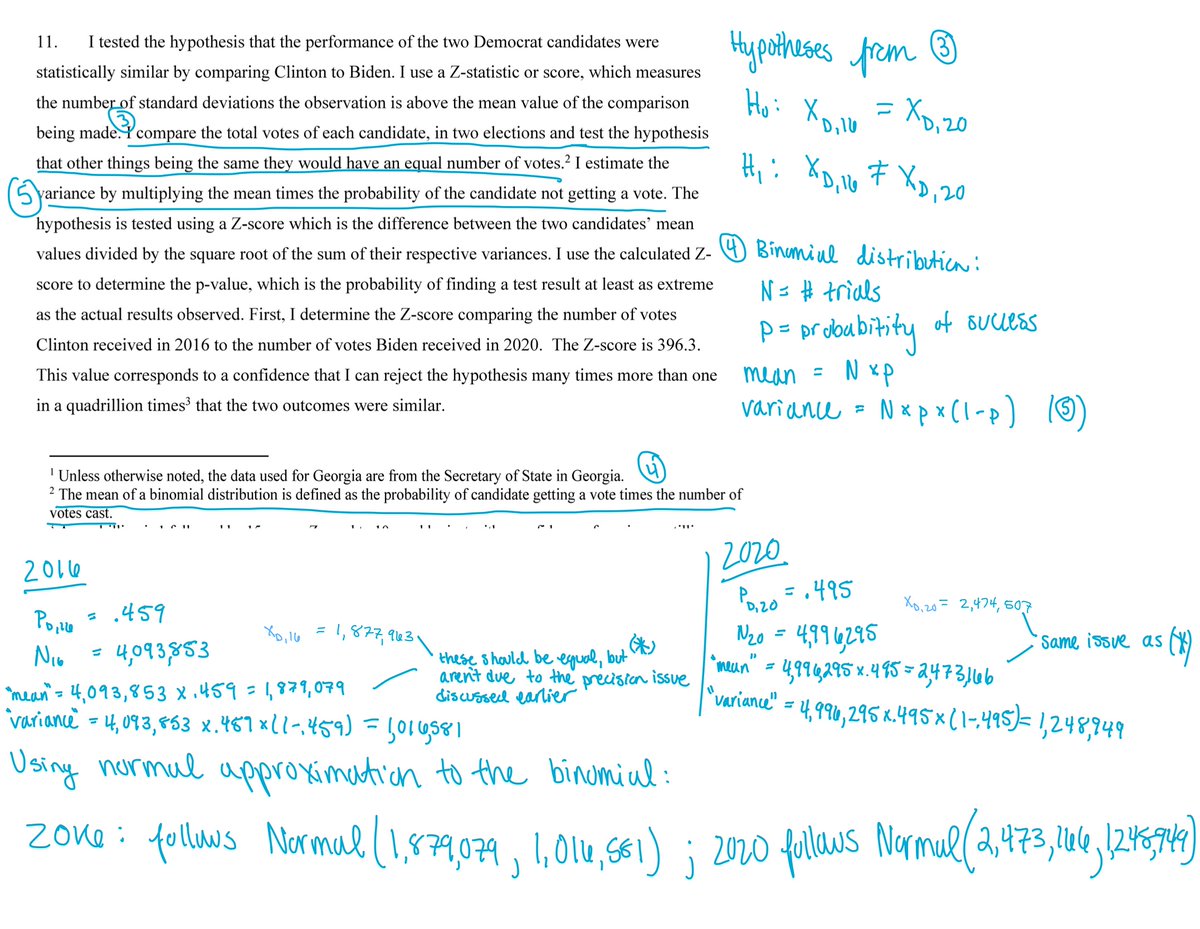 11. I tested the hypothesis that the performance of the two Democrat candidates were
statistically similar by comparing Clinton to Biden. I use a Z-statistic or score, which measures
the number of standard deviations the observation is above the mean value of the comparison
being made. I compare the total votes of each candidate, in two elections and test the hypothesis
that other things being the same they would have an equal number of votes.² I estimate the
variance by multiplying the mean times the probability of the candidate not getting a vote. The
hypothesis is tested using a Z-score which is the difference between the two candidates' mean
values divided by the square root of the sum of their respective variances. I use the calculated Z-
score to determine the p-value, which is the probability of finding a test result at least as extreme
as the actual results observed. First, I determine the Z-score comparing the number of votes
Clinton received in 2016 to the number of votes Biden received in 2020. The Z-score is 396.3.
This value corresponds to a confidence that I can reject the hypothesis many times more than one
in a quadrillion times³ that the two outcomes were similar.
③
⑤
Hypotheses from ③
H₀: X D,16 = X D,20
H₁: X D,16 ≠ X D,20
④ Binomial distribution:
N = # trials
p = probabitity of success
mean = N × p
variance = N × p × (1-p) (⑤)
¹ Unless otherwise noted, the data used for Georgia are from the Secretary of State in Georgia.
④
² The mean of a binomial distribution is defined as the probability of candidate getting a vote times the number of
votes cast.
2016
P D,16 = .459
N16 = 4,093,853
X D,16 = 1,877,963
"mean" = 4,093,853 × .459 = 1,879,079
"variance" = 4,093,853 × .459 × (1-.459) = 1,016,581
these should be equal, but (*)
aren't due to the precision issue
discussed earlier
2020
P D,20 = .495
X D,20 = 2,474,507
N20 = 4,996,295
"mean" = 4,996,295 × .495 = 2,473,166
"variance" = 4,996,295 × .495 × (1-.495) = 1,248,949
same issue as (*)
Using normal approximation to the binomial:
2016: follows Normal (1,879,079, 1,016,581) ; 2020 follows Normal (2,473,166, 1,248,949)